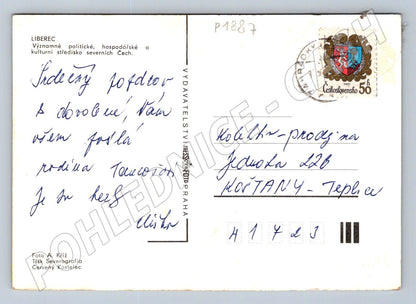 P1887
LIBEREC
Významné politické, hospodářské a
kulturní středisko severních Čech.
Srdečný pozdrav
z dovolené, Vám
všem posílá
rodina
Je tu hezky
Foto A. Kříž
Tisk Severografia
Červený Kostelec
PRAHA
Československo
50 h
Kolektiv - prodejna
Jednota 22B
KOŠŤANY - Teplice
41723
POHLEDNICE - CECH